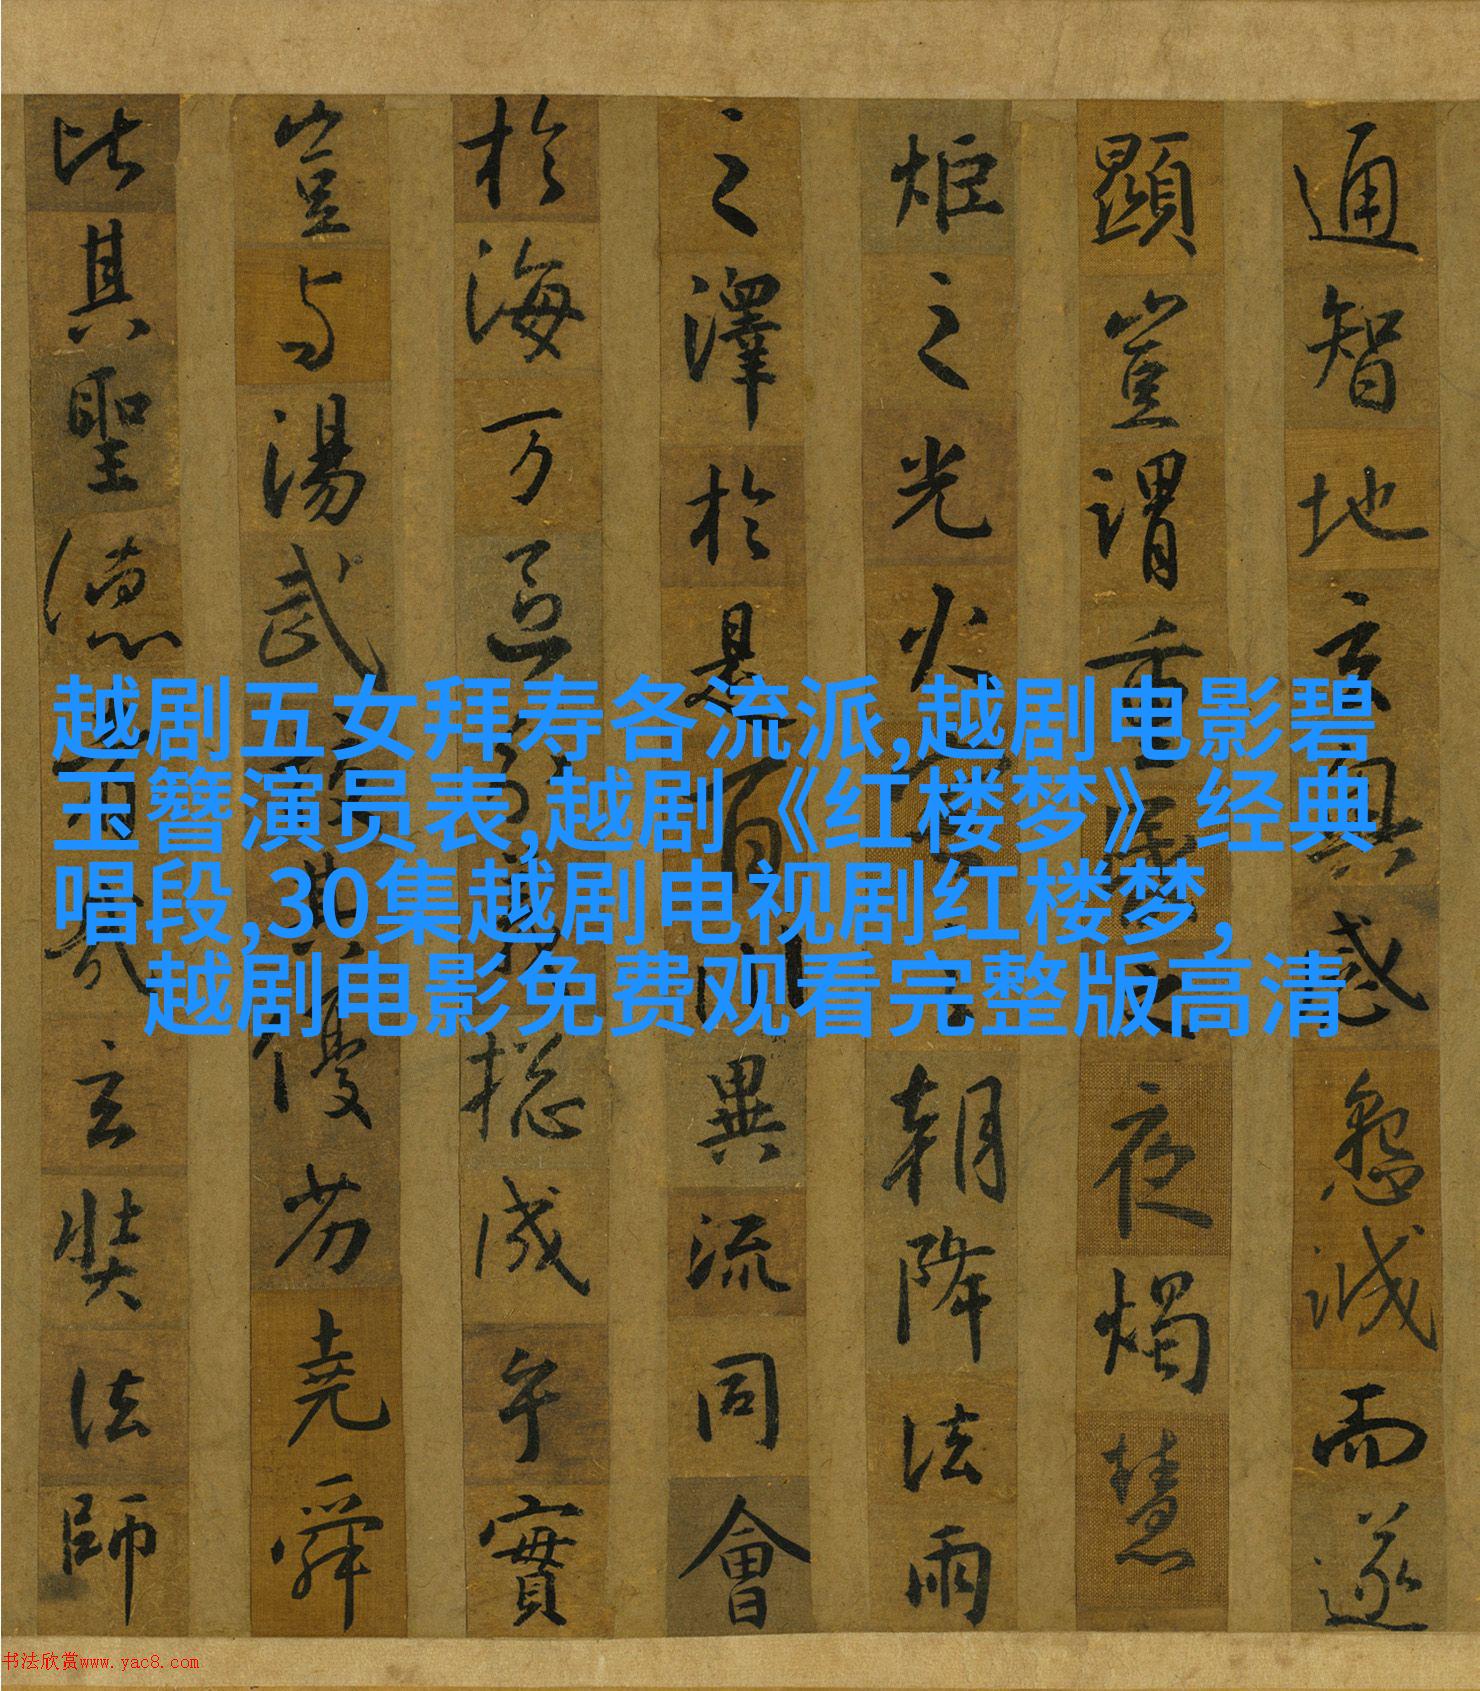 通智地玄奥感懇誠而遂
顯豈謂重昏之夜燭慧
炬之光火宅之朝降法雨
之澤於是百川異流同會
於海万區分義揔成乎實
豈与湯武校其優劣堯舜
比其聖德者哉玄奘法師
越剧五女拜寿各流派,越剧电影碧
玉簪演员表,越剧《红楼梦》经典
唱段,30集越剧电视剧红楼梦,
越剧电影免费观看完整版高清
书法欣赏www.yac8.com